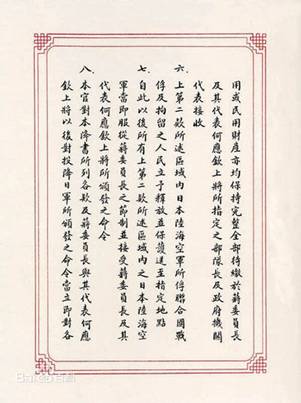 用或民用財產亦均保持完整全部待繳於蔣委員長
及其代表何應欽上將所指定之部隊長及政府機關
代表接收
六、上第二款所述區域內日本陸海空軍所俘聯合國戰
俘及拘留之人民立予釋放並保護送至指定地點
七、自此以後所有上第二款所述區域內之日本陸海空
軍當即服從蔣委員長之節制並接受蔣委員長及其
代表何應欽上將所頒發之命令
八、本官對本降書所列各款及蔣委員長與其代表何應
欽上將以後對投降日軍所頒發之命令當立即對各